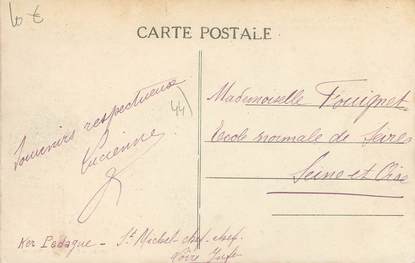 10 €
CARTE POSTALE
Souvenirs respectueux
Lucienne
44
Mademoiselle Fouignet
Ecole normale de Sèvres
Seine et Oise
Ker Padague - St Michel-chef-chef
Loire Infe